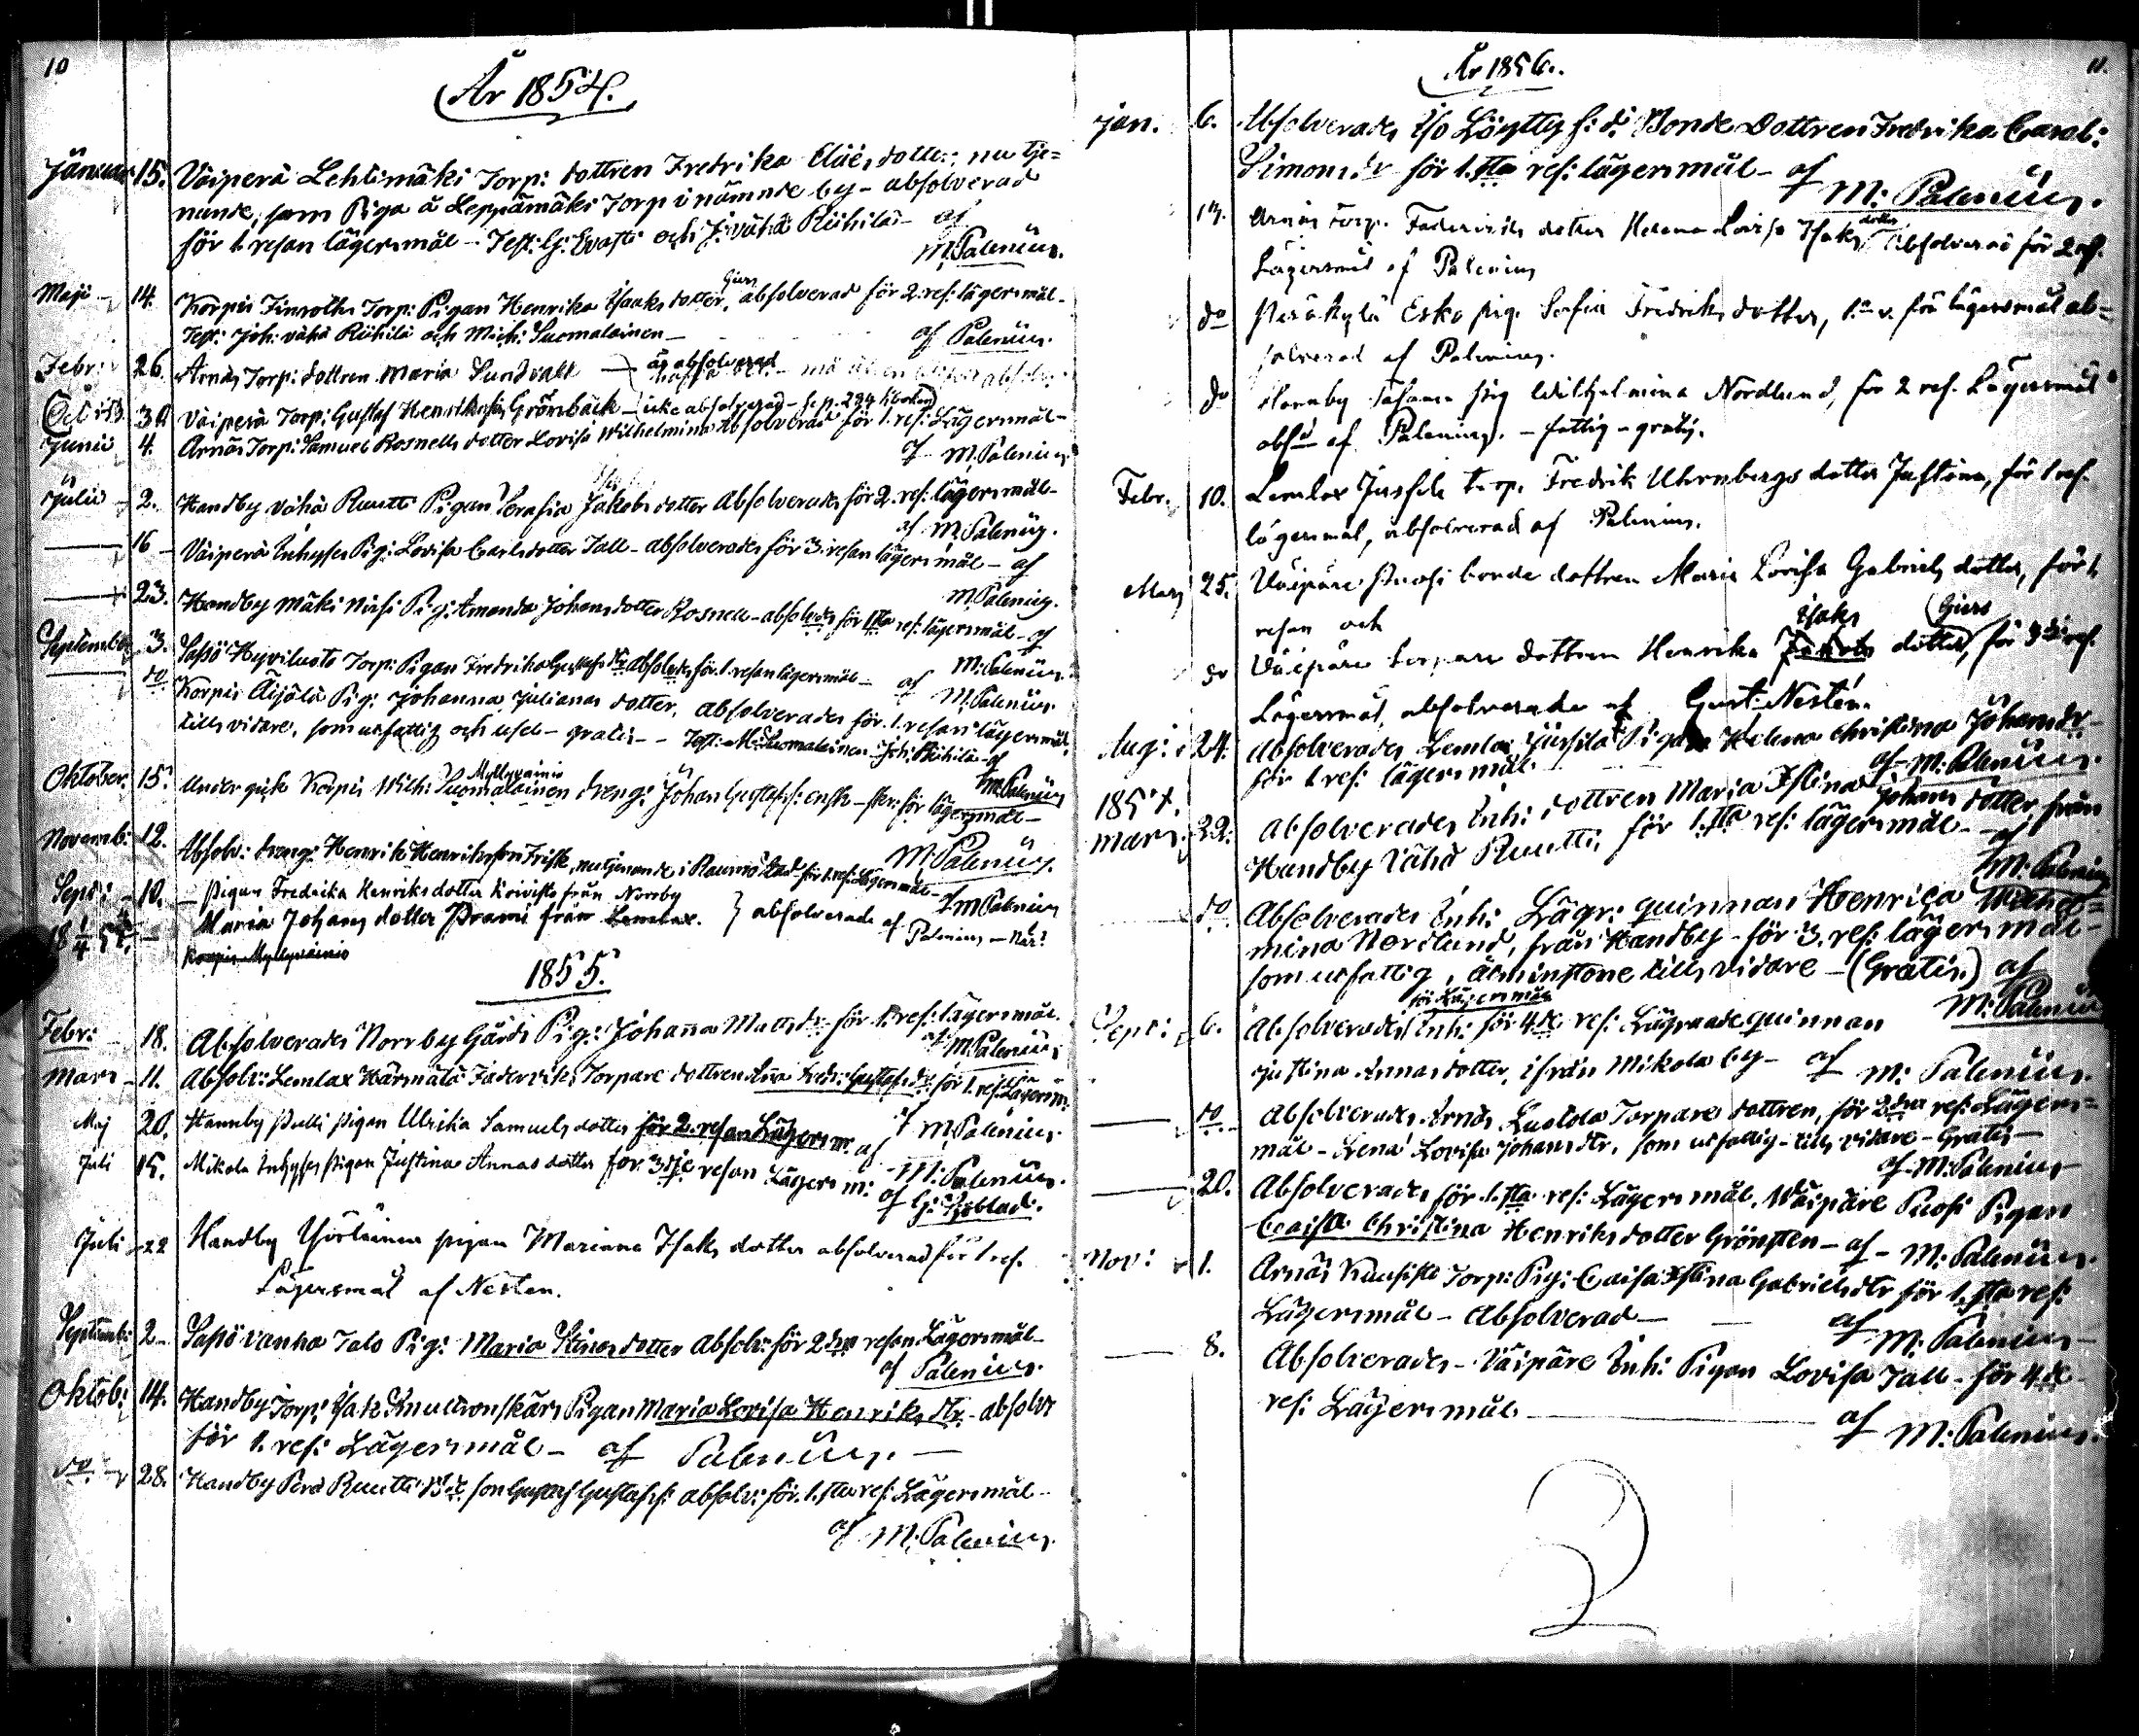 10
År 1854.
Januari 15. Väiperä Lehtimäki Torp: dottren Fredrika Eliæ dotter, nu tje=
nande, som Piga å Leppämäki Torp i nämnde by - absolverad
för 1. resan lägersmål - Test: G: Evasti och J: vähä Riihilä - af
M: Palenius.
Maji 14. Korpis Finvolks Torp: Pigan Henrika Isaks dotter, Giers absolverad för 2. res: lägersmål -
Test: Joh: vähä Riihilä och Mich: Suomalainen - af Palenius.
Febr: 26. Arnäs Torp: dottren Maria Sundvall - är absolverad
Oct: 30 Väiperä Torp: Gustaf Henriksson Grönbäck - icke absolverad - se p. 294 Kboken
Junii 4. Arnäs Torp: Samuel Rosnells dotter Lovisa Wilhelmina Absolverad för 1. res: Lägersmål -
af M: Palenius
Julii 2. Handby vähä Ruutti Pigan Serafia Jakobs dotter Absolverades för 2. res: lägersmål -
af M: Palenius.
16 Väiperä Inhyses Pig: Lovisa Carlsdotter Tall - absolverades för 3. resan lägersmål - af
M: Palenius.
23. Handby Mäki Pig: Amanda Johansdotter Rosnell - absolvdes för 1sta res: lägersmål - af
M: Palenius.
September 3. Sassö Hyviluoto Torp: Pigan Fredrika Gustafs dtr absolvdes för 1. resan lägersmål -
af M: Palenius
do Korpis Äijälä Pig: Johanna Julianas dotter, absolverades för 1. resan lägersmål,
tills vidare, som utfattig och usel - gratis - Test: M: Suomalainen, Joh: Riihilä - af
M: Palenius
Oktober: 15. Undergick Korpis Mich: Suomalainen Myllyvainio dreng: Johan Gustafss: ensk - skr: för lägersmål -
M: Palenius.
Novemb: 12. Absolv: dreng: Henrik Henriksson Frisk, nu tjenande i Raumo stad för 1. res: lägersmål -
af M Palenius
Sept: 10. - Pigan Fredrika Henriksdotter Koivisto från Norrby
Maria Johans dotter Prami från Lemlax. } absolverade af
Palenius
Korpis Myllyvainio
1855.
Febr: 18. Absolverades Norrby Gårds Pig: Johanna Matts dr för 1. res: lägersmål.
af M: Palenius
Mars 11. Absolv: Lemlax Härmälä Fäderviks Torpare dottren Anna Fredr: Gustafs dr för 1. res: Lägersm:
af M: Palenius.
Maj 20. Hannby Pulli Pigan Ulrika Samuels dotter för 2. resan Lägersm: af
M: Palenius.
Juli 15. Mikola Inhyses Pigan Justina Annas dotter för 3dje resan Lägersm:
af G:
Juli 22 Handby Yörläinen pigan Mariana Isaks dotter absolverad för 1 res.
Lägersmål af Nesten.
Septemb: 2. Sassö Vanha Talo Pig: Maria Stinas dotter Absolv: för 2dra resan Lägersmål -
af Palenius.
Oktob: 14. Handby Torp: Isak Knutronskärs Pigan Maria Lovisa Henriks dtr - absolv:
för 1. res: Lägersmål - af Palenius. -
do 28. Handby Perä Ruutti Bde son Gustaf Gustafss: absolv: för 1. sta res: Lägersmål -
af M: Palenius.
11.
År 1856.
Jan. 6. Absolverades Löyttys f: d: Bonde Dottren Fredrika Carol:
Simonsdr för 1. sta res: lägersmål - af
M: Palenius.
Arnäs Torp. Faderviks dotter Helena Lovisa Isaks dotter Absolverad för 2 res.
Lägersmål af Palenius
do Peräkylä Esko pig. Sofia Fredriks dotter, 1:a r. frå lägersmål ab=
solverad af Palenius.
do Hannby pig Wilhelmina Nordlund, för 2 res. Lägersmål
absd af Palenius. - fattig - gratis.
Febr. 10. Lemlax Jussila torp. Fredrik Uhrnbergs dotter Justina, för 1 res.
lägersmål, absolverad af Palenius.
Mars 25. Väipäre Puosi bonde dottren Maria Lovisa Gabriels dotter, för 1.
resan och
do Väipäre torpare dottren Henrika Jakobs Isaks dotter, (Giers för 3dje res.
Lägersmål, absolverade af Gust: Nestén.
Aug: 24. Absolverades Lemlax Yürsilä Pigan Helena Christina Johansdr -
för 1. res: lägersmål. af M: Palenius.
1857.
Mars 22. Absolverades Inh: dottren Maria Xstina Johans dotter, från
Handby Vähä Ruutti, för 1. sta res: lägersmål - af
M: Palenius
do Absolverades Inh: Lägr: quinnan Henrica Wilhel=
mina Nordlund, från Handby - för 3. res: lägersmål -
som utfattig, åtminstone tills vidare - (Gratis.) af
M: Palenius
Sept: 6. Absolverades för Lägersmål Inh: för 4de res: Lägrade quinnan
Justina Annas dotter, ifrån Mikola by - af M: Palenius.
do Absolverades Arnäs Luotola Torpare dottren, för 2dra res: Lägers=
mål - Lena Lovisa Johans dtr, som utfattig - tills vidare - Gratis -
af M: Palenius
20. Absolverades för 1. sta res: Lägersmål, Wäipäre Puosi Pigan
Caisa Christina Henriks dotter Grönsten - af - M: Palenius.
Nov: 1. Arnäs Kuusisto Torp: Pig: Caisa Xstina Gabriels dtr för 1. sta res:
Lägersmål - Absolverad - af M: Palenius -
8. Absolverades - Väipäre Inh: Pigan Lovisa Tall - för 4de
res: Lägersmål - af M: Palenius.
2